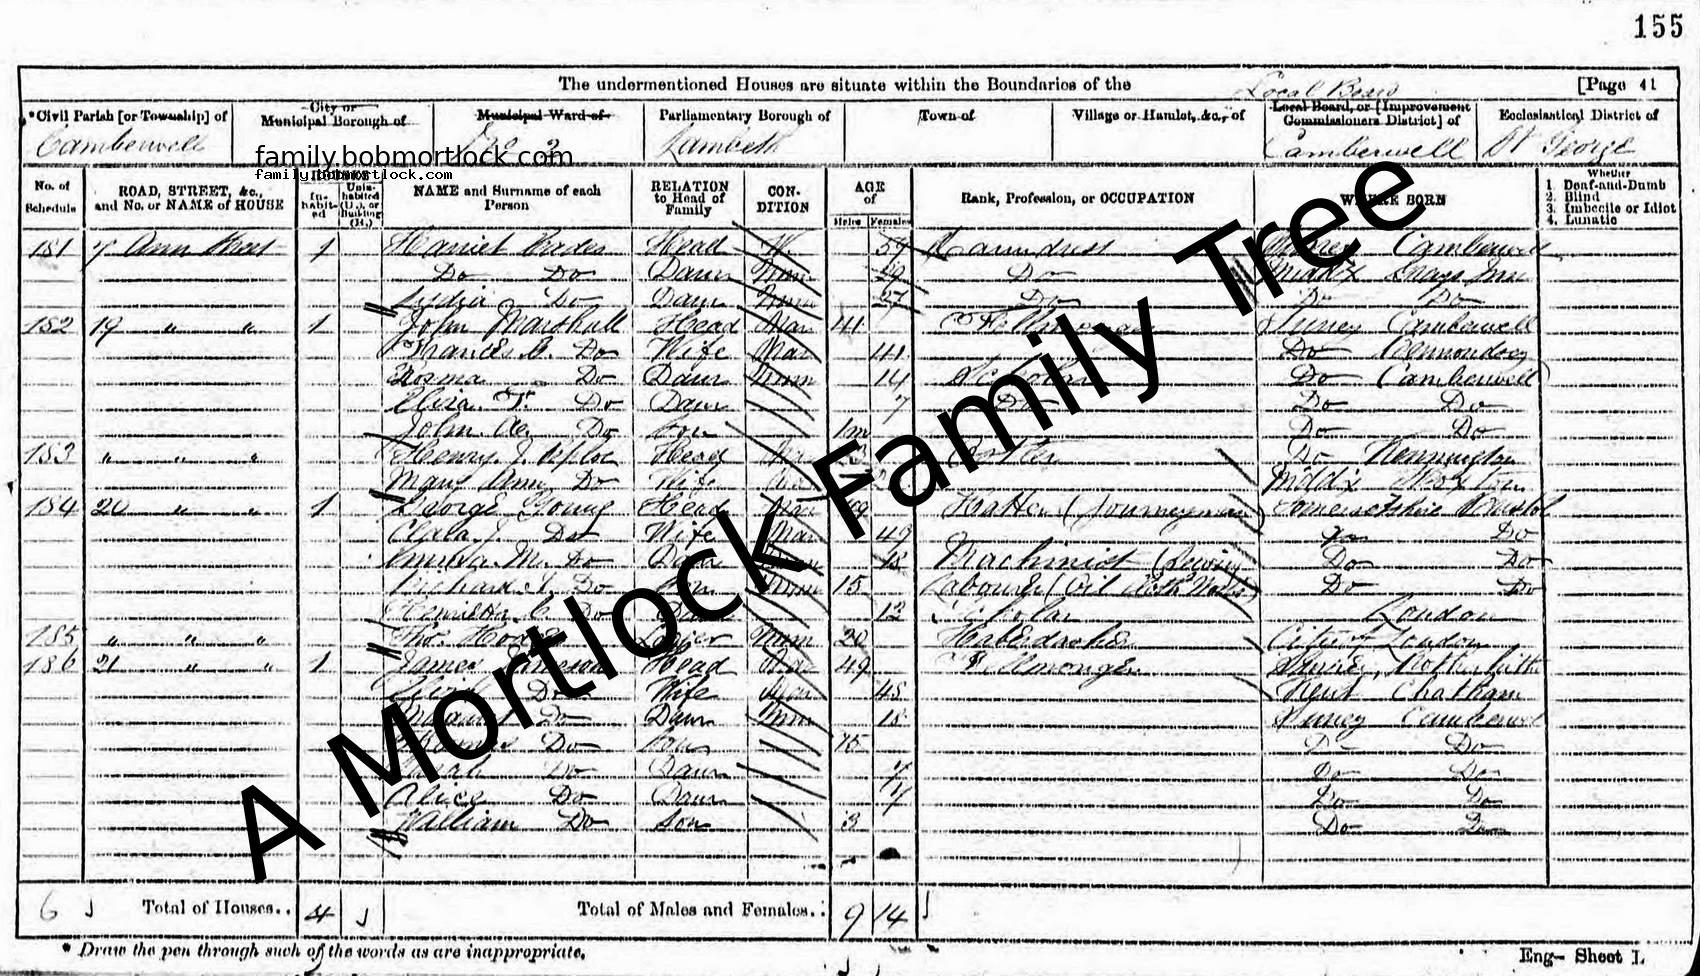 155
The undermentioned Houses are situate within the Boundaries of the [Page 41
Local Board
*Civil Parish [or Township] of City or Municipal Borough of Municipal Ward of Parliamentary Borough of Town of Village or Hamlet, &c., of Local Board, or [Improvement Commissioners District] of Ecclesiastical District of
Camberwell Lambeth Camberwell St George
family.bobmortlock.com
family.bobmortlock.com
No. of Schedule ROAD, STREET, &c., and No. or NAME of HOUSE HOUSES In-habit-ed Unin-habited (U.), or Building (B.) NAME and Surname of each Person RELATION to Head of Family CON-DITION AGE of Males Females Rank, Profession, or OCCUPATION WHERE BORN Whether
1. Deaf-and-Dumb
2. Blind
3. Imbecile or Idiot
4. Lunatic
181 7 Ann Street 1 Harriet Head W 59 Laundress Surrey Camberwell
Do Do Daur Unm 29 Do Middx
Lydia Do Daur Unm 27 Do Do Do
182 19 " " 1 John Marshall Head Mar 41 Fellmonger Surrey Camberwell
Frances C. Do Wife Mar 41 Do Bermondsey
Do Daur Unm 14 Scholar Do Camberwell
Eliza T. Do Daur 7 Do Do Do
John Do Son 1m Do Do
183 " " " Henry J. Head Do Kennington
Mary Ann Do Wife Middx Hoxton
184 20 " " 1 George Young Head Mar 49 Hatter (Journeyman) Somersetshire Bristol
Clara J. Do Wife Mar 49 Do Do
Emma M. Do Daur Unm 18 Machinist (Sewing Do Do
Richard Do Son Unm 15 Labourer (Oil Cloth Works) Do Do
Henrietta C. Do 12 Scholar London
185 " " " Thos. Lodger Unm 20 Haberdasher City of London
186 21 " " 1 James Head Mar 49 Fellmonger Surrey, Rotherhithe
Do Wife Mar 45 Kent Chatham
Do Daur Unm 18 Surrey Camberwell
Thomas Do Son 15 Do Do
Sarah Do Daur 7 Do Do
Alice Do Daur 7 Do Do
William Do Son 3 Do Do
A Mortlock Family Tree
6 Total of Houses.. 4 Total of Males and Females.. 9 14
* Draw the pen through such of the words as are inappropriate.
Eng- Sheet L